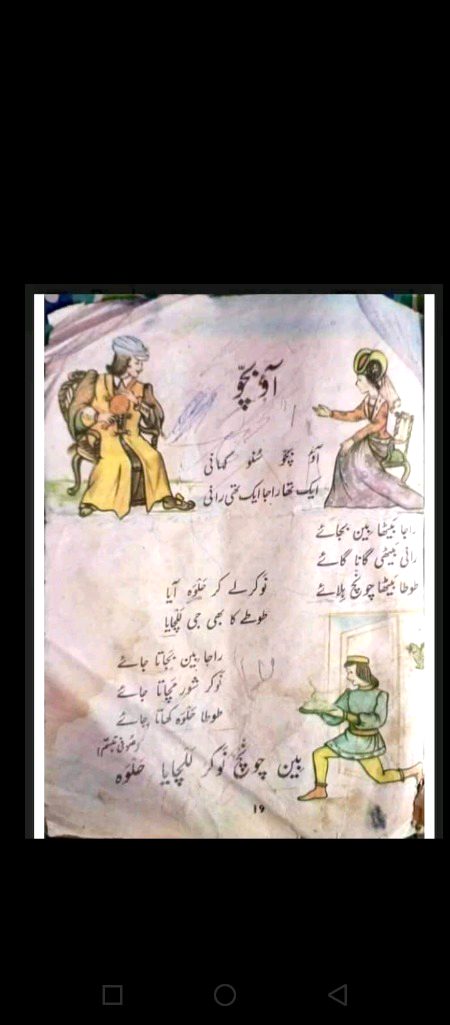 آؤ بچّو
آؤ بچّو سُنو کہانی
ایک تھا راجا ایک تھی رانی
راجا بَیٹھا بین بجائے
رانی بَیٹھی گانا گائے
طوطا بَیٹھا چونچ ہِلائے
نَوکر لے کر حَلوَہ آیا
طوطے کا بھی جی لَلچایا
راجا بین بَجاتا جائے
نَوکر شور مَچاتا جائے
طوطا حَلوَہ کھاتا جائے
(صُوفی تبسّم)
بین چونچ نَوکر لَلچایا حَلوَہ
۱۹